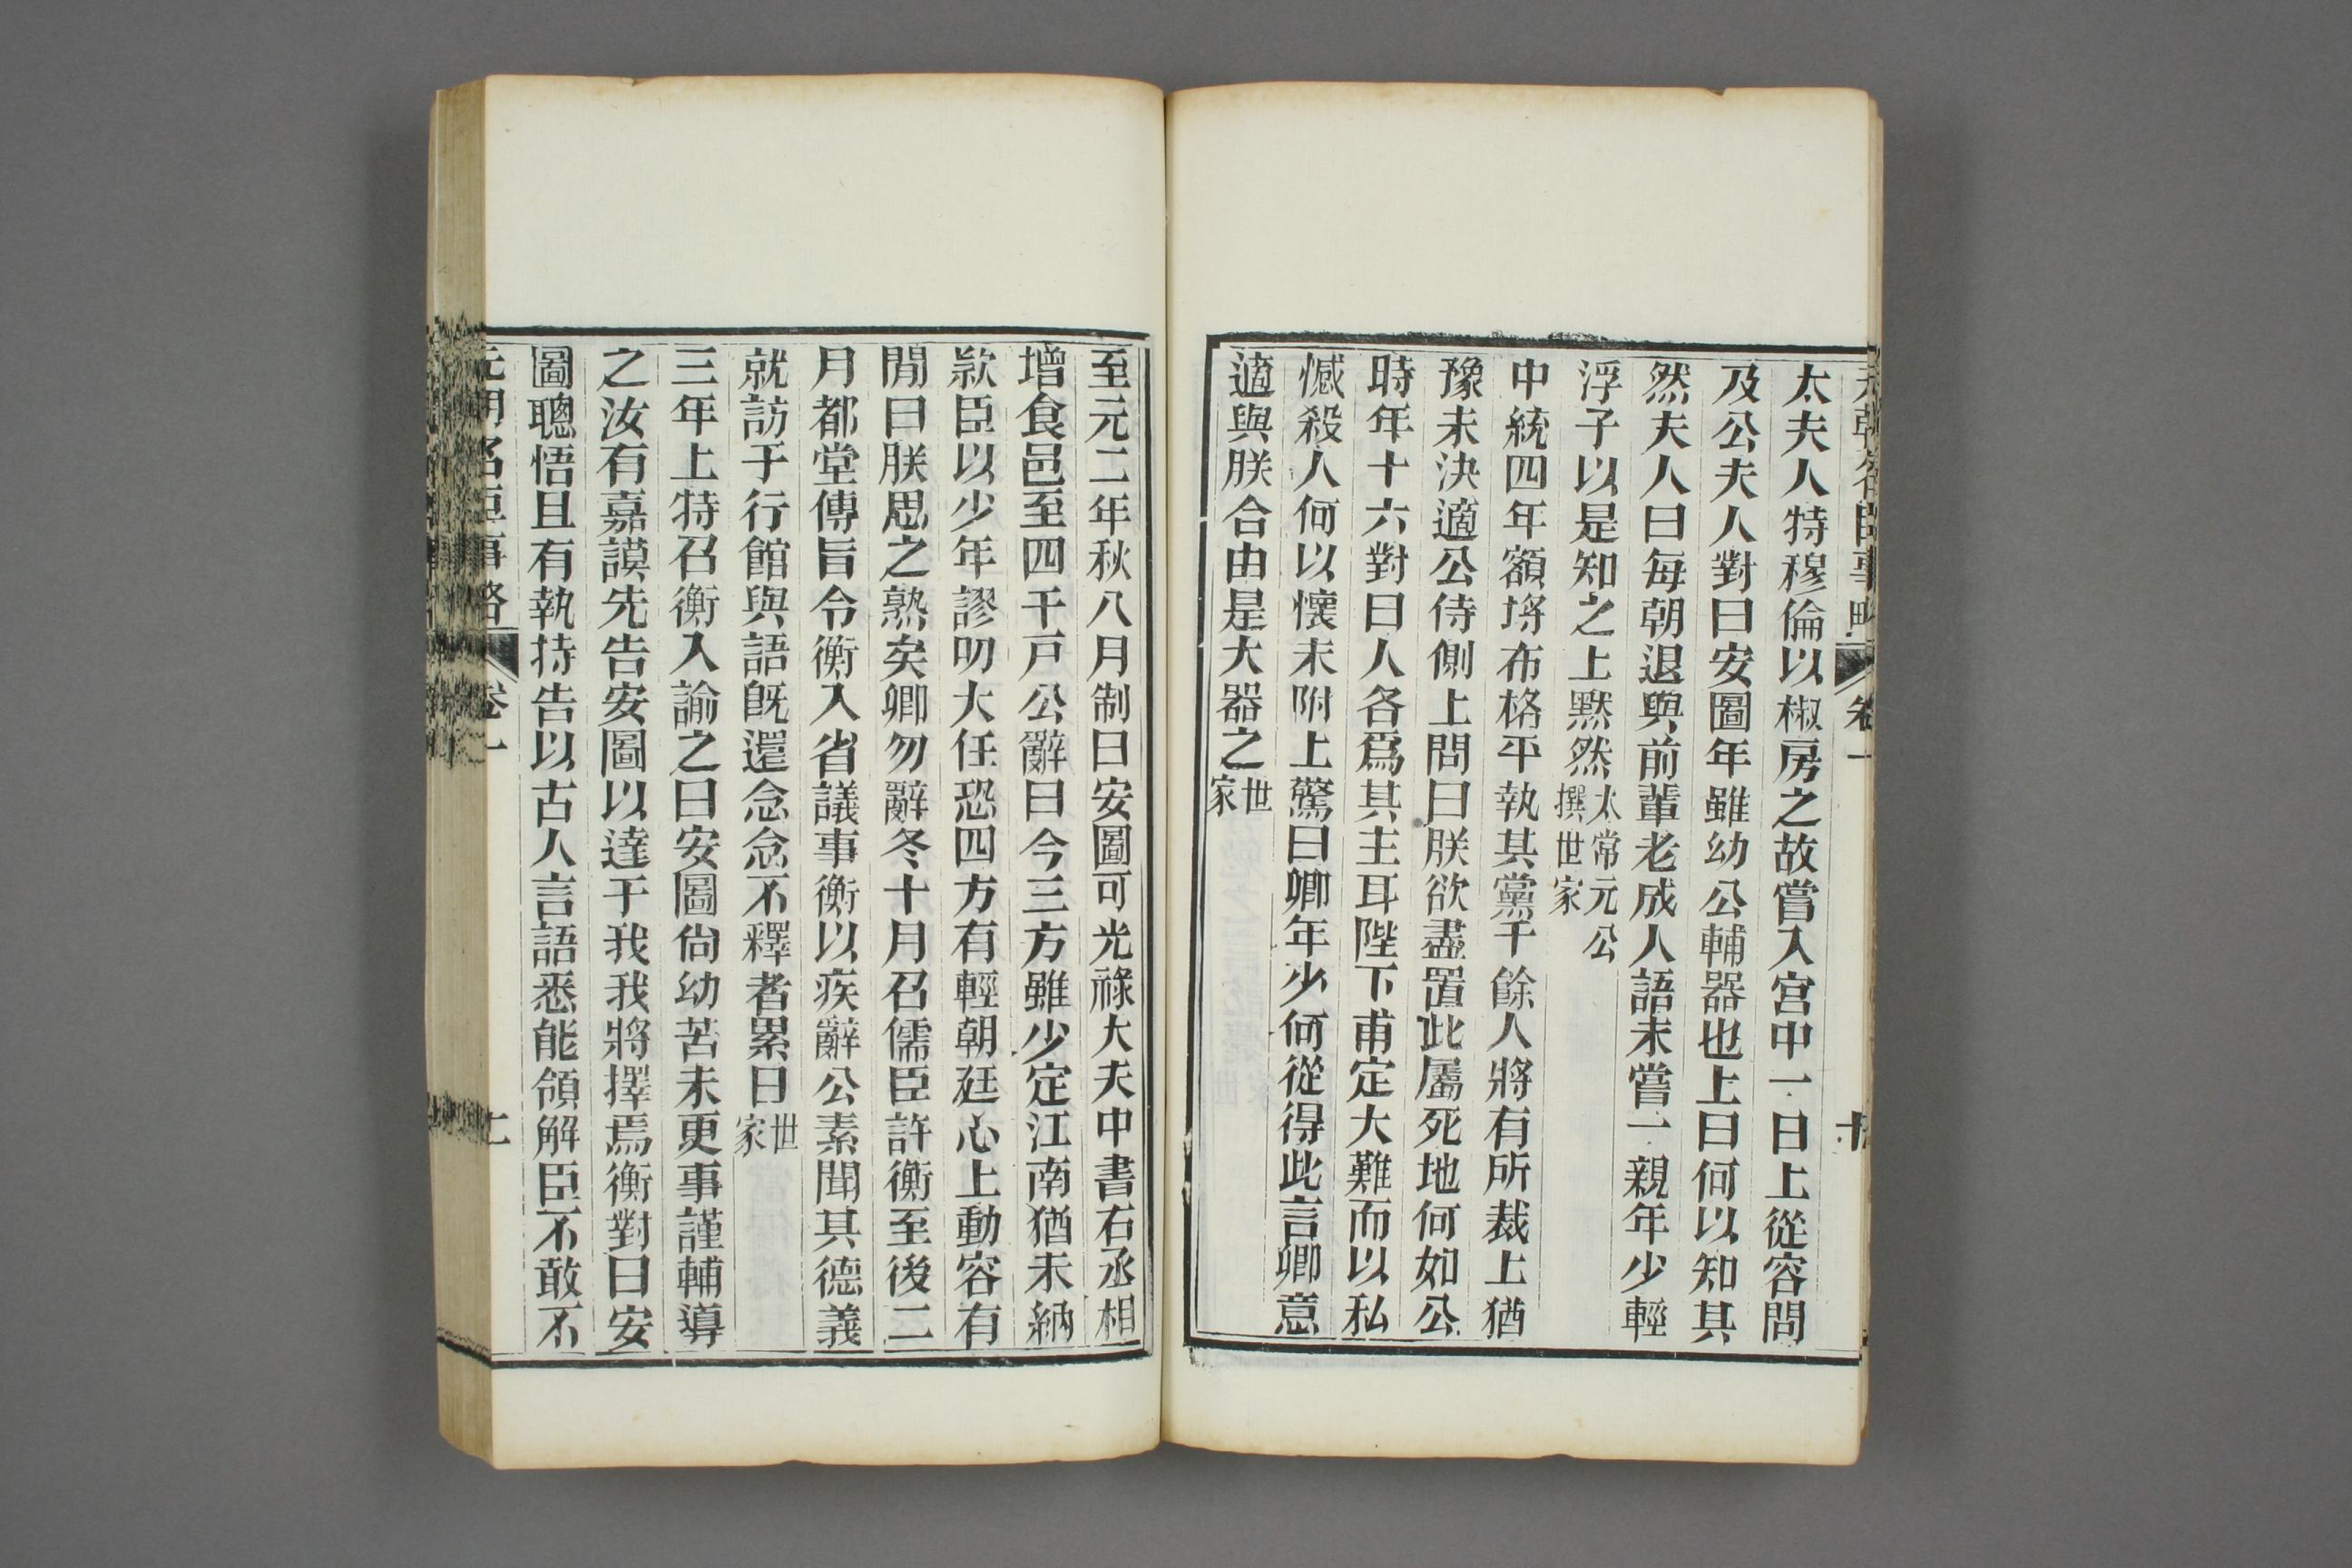 太夫人特穆倫以椒房之故嘗入宮中一日上從容問
及公夫人對曰安圖年雖幼公輔器也上曰何以知其
然夫人曰每朝退與前輩老成人語未嘗一親年少輕
浮子以是知之上黙然太常元公撰世家
中統四年額埓布格平執其黨千餘人將有所裁上猶
豫未決適公侍側上問曰朕欲盡置此屬死地何如公
時年十六對曰人各爲其主耳陛下甫定大難而以私
憾殺人何以懷未附上驚曰卿年少何從得此言卿意
適與朕合由是大器之世家
至元二年秋八月制曰安圖可光祿大夫中書右丞相
增食邑至四千戸公辭曰今三方雖少定江南猶未納
款臣以少年謬叨大任恐四方有輕朝廷心上動容有
閒曰朕思之熟矣卿勿辭冬十月召儒臣許衡至後二
月都堂傳旨令衡入省議事衡以疾辭公素聞其德義
就訪于行館與語旣還念念不釋者累日世家
三年上特召衡入諭之曰安圖尙幼苦未更事謹輔導
之汝有嘉謨先告安圖以達于我我將擇焉衡對曰安
圖聰悟且有執持告以古人言語悉能領解臣不敢不
元朝名臣事略 卷一